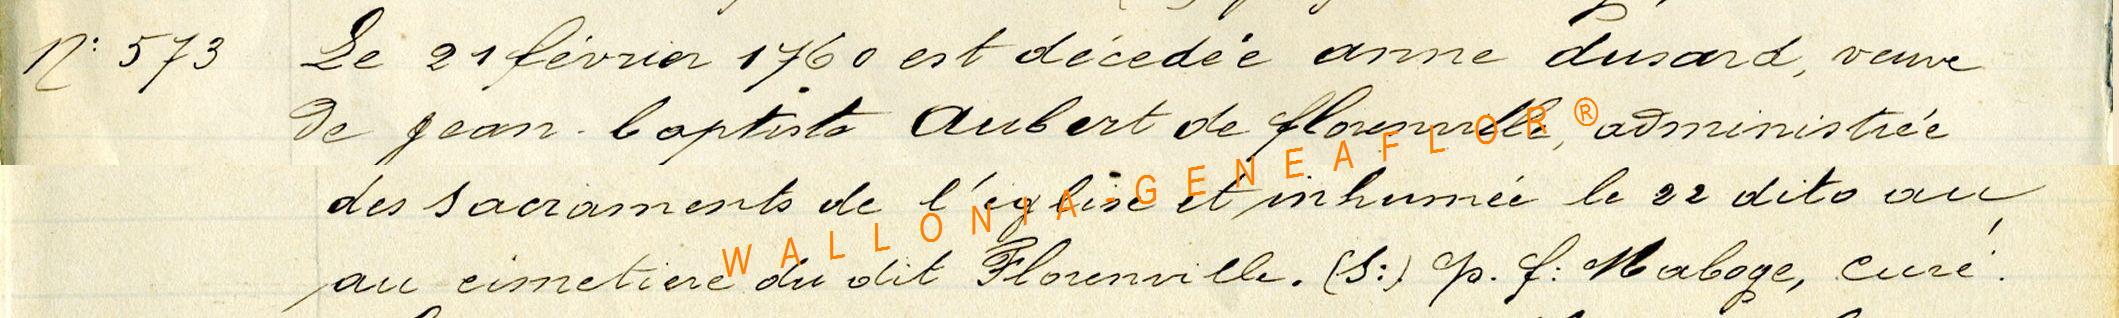 N° 573 Le 21 février 1760 est décedée anne dusard, veuve
de jean-baptiste Aubert de florenville, administrée
des sacraments de l'église et inhumée le 22 dito au
au cimetiere du dit Florenville. (S:) p. f: Maboge, curé.
WALLONIA-GENEAFLOR®